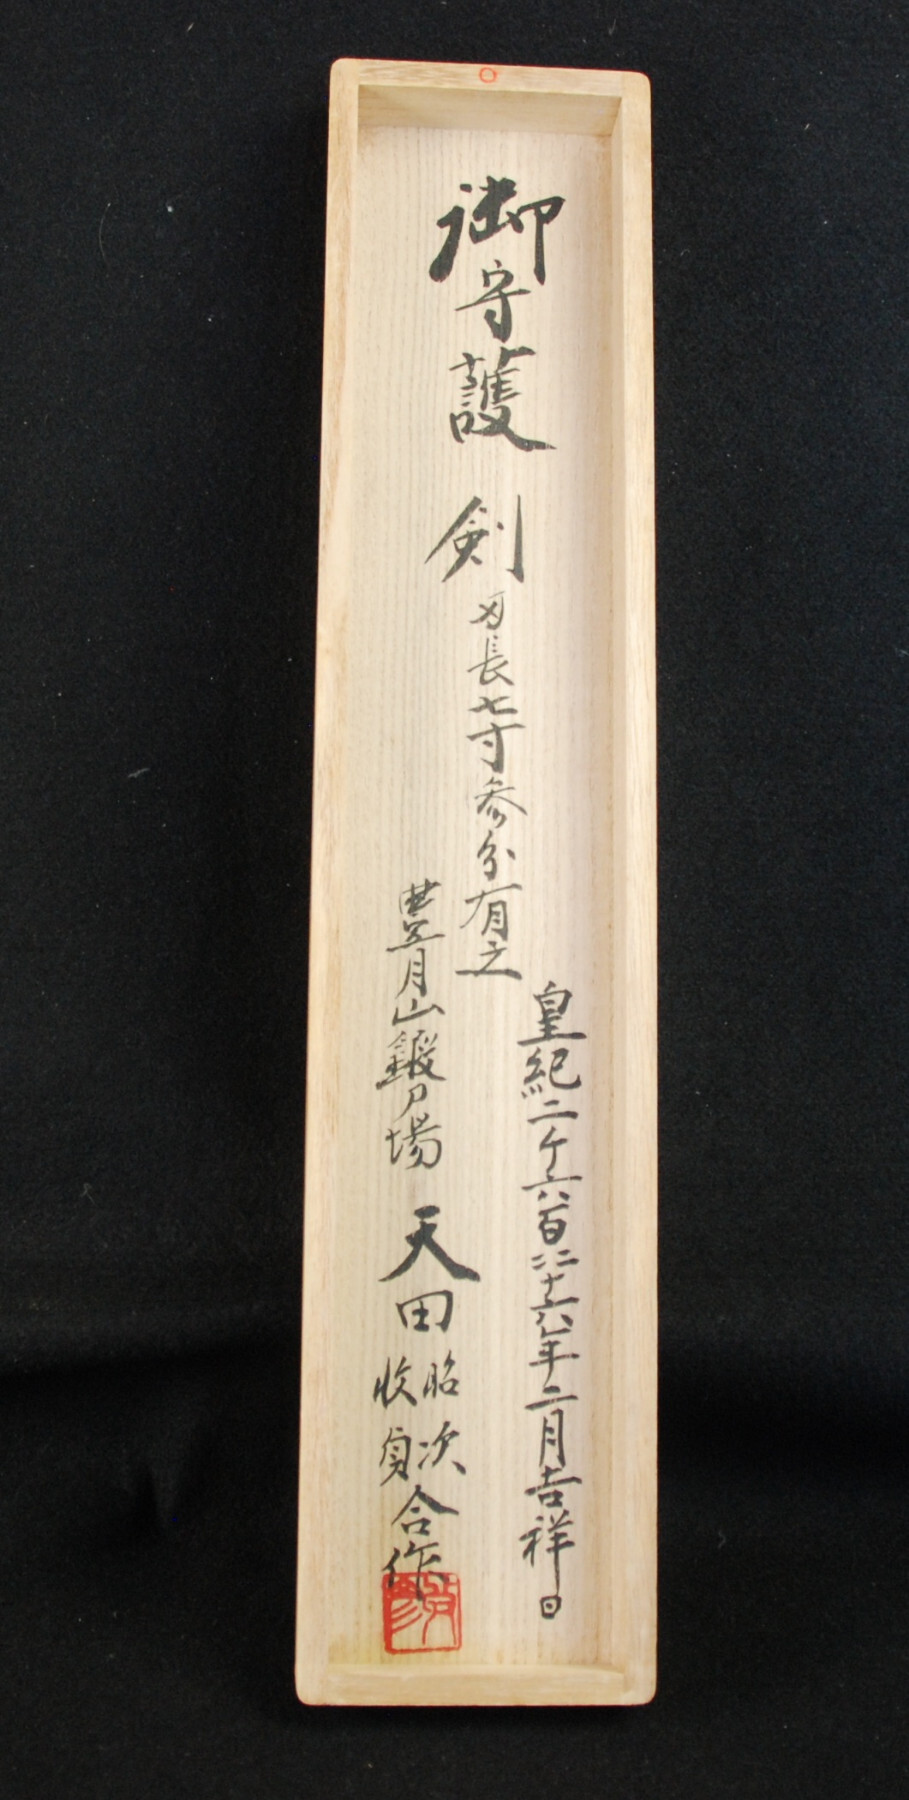 御守護 剣 刃長七寸参分有之
皇紀二千六百四十六年二月吉祥日
豊月山鍛刀場 天田昭次収貞合作